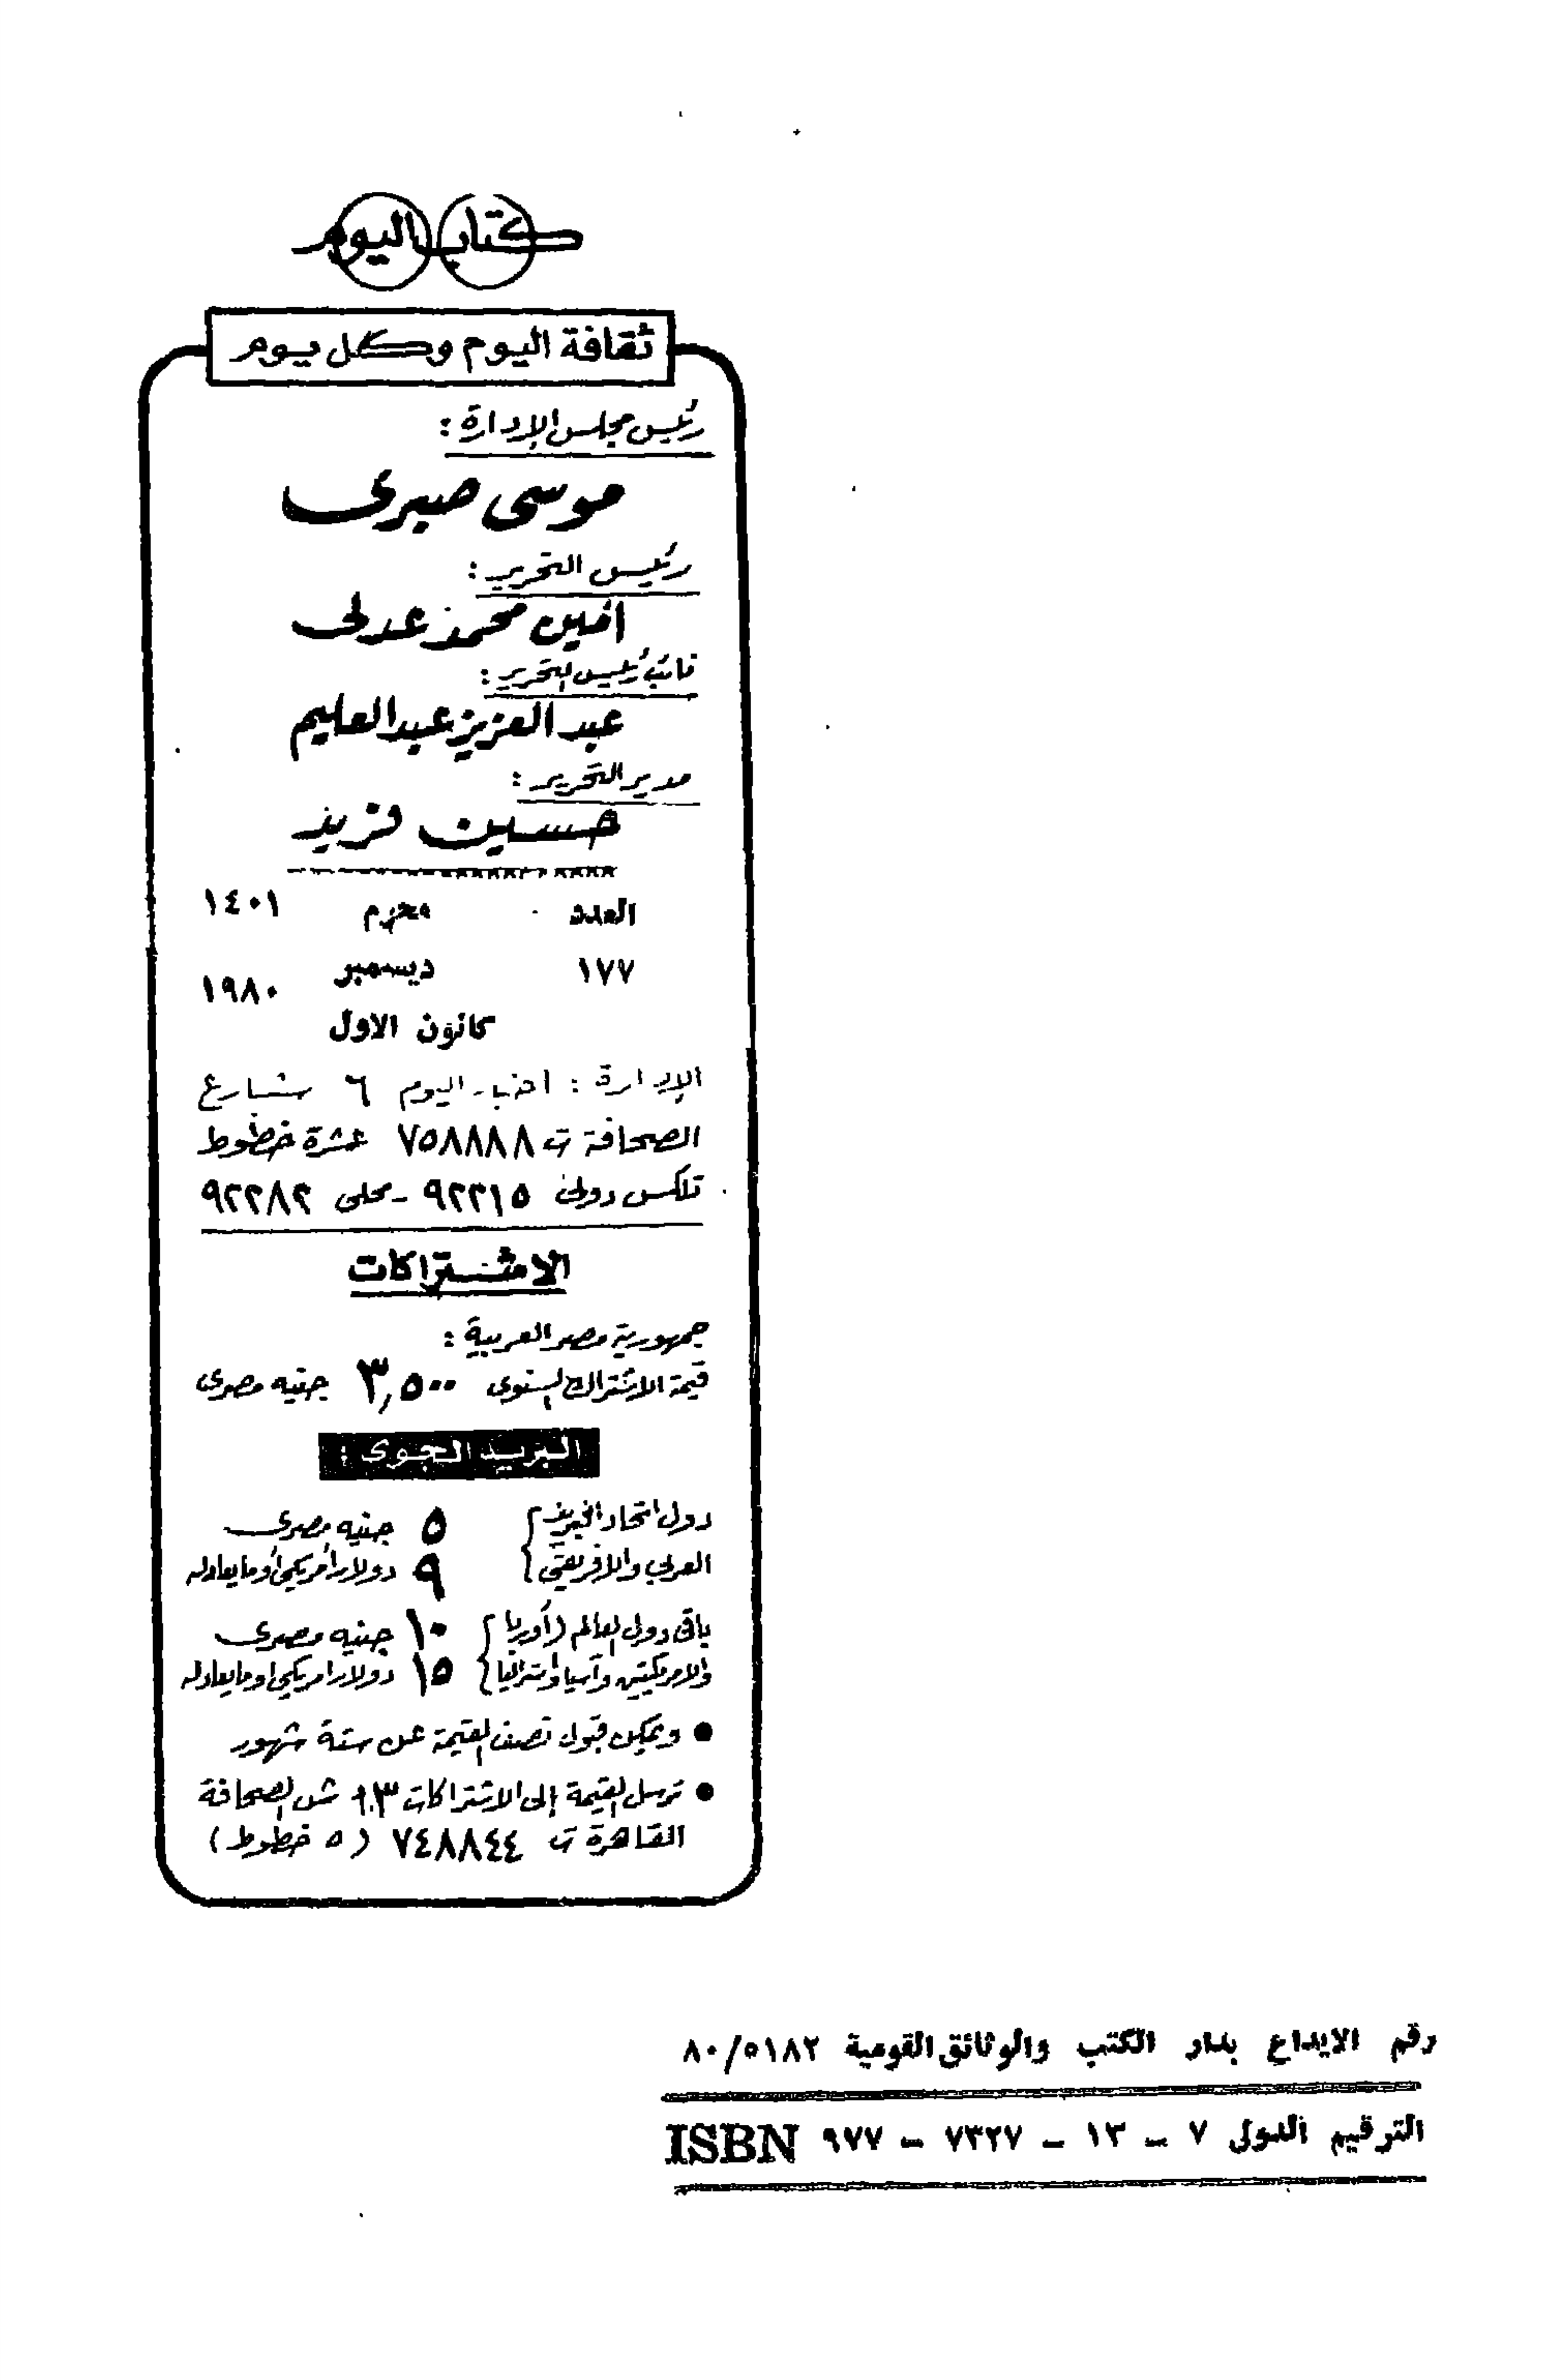 كتاب اليوم
ثقافة اليوم وكل يوم
رئيس مجلس الإدارة :
موسى صبرى
رئيس التحرير :
أمين محمد عدلى
نائب رئيس التحرير :
عبد العزيز عبد العليم
مدير التحرير :
حسين فريد
العدد محرم ١٤٠١
١٧٧ ديسمبر ١٩٨٠
كانون الاول
الإدارة : اخبار اليوم ٦ شارع
الصحافة ت ٧٥٨٨٨٨ عشرة خطوط
تلكس دولى ٩٢٢١٥ - محلى ٩٢٢٨٢
الاشتراكات
جمهورية مصر العربية :
قيمة الاشتراك السنوى ٣,٥٠٠ جنيه مصرى
البريد الجوى :
دول اتحاد البريد } ٥ جنيه مصرى
العربى والافريقى } ٩ دولار أمريكى أو ما يعادله
باقى دول العالم (أوربا } ١٠ جنيه مصرى
والامريكتين وآسيا وأستراليا } ١٥ دولار امريكى او ما يعادله
● ويمكن قبول نصف القيمة عن ستة شهور
● ترسل القيمة إلى الاشتراكات ٣ش الصحافة
القاهرة ت ٧٤٨٨٤٤ (٥ خطوط)
رقم الايداع بدار الكتب والوثائق القومية ٨٠/٥١٨٢
الترقيم الدولى ٧ - ١٣ - ٧٣٢٧ - ٩٧٧ ISBN